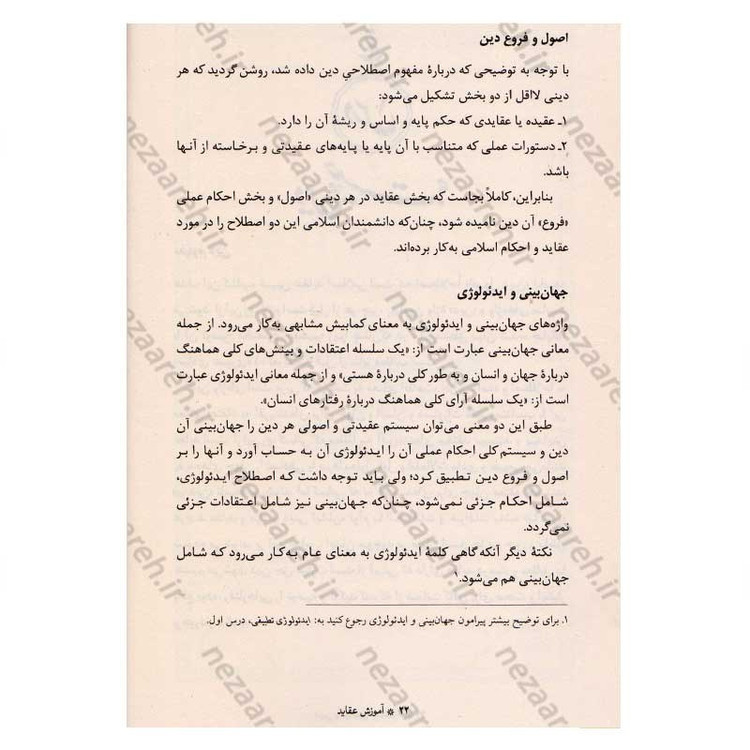 اصول و فروع دین
با توجه به توضیحی که دربارهٔ مفهوم اصطلاحیِ دین داده شد، روشن گردید که هر
دینی لااقل از دو بخش تشکیل می‌شود:
۱ـ عقیده یا عقایدی که حکم پایه و اساس و ریشهٔ آن را دارد.
۲ـ دستورات عملی که متناسب با آن پایه یا پایه‌های عقیدتی و برخاسته از آنها
باشد.
بنابراین، کاملاً بجاست که بخش عقاید در هر دینی «اصول» و بخش احکام عملی
«فروع» آن دین نامیده شود، چنان‌که دانشمندان اسلامی این دو اصطلاح را در مورد
عقاید و احکام اسلامی به‌کار برده‌اند.
جهان‌بینی و ایدئولوژی
واژه‌های جهان‌بینی و ایدئولوژی به معنای کمابیش مشابهی به‌کار می‌رود. از جمله
معانی جهان‌بینی عبارت است از: «یک سلسله اعتقادات و بینش‌های کلی هماهنگ
دربارهٔ جهان و انسان و به طور کلی دربارهٔ هستی» و از جمله معانی ایدئولوژی عبارت
است از: «یک سلسله آرای کلی هماهنگ دربارهٔ رفتارهای انسان».
طبق این دو معنی می‌توان سیستم عقیدتی و اصولی هر دین را جهان‌بینی آن
دین و سیستم کلی احکام عملی آن را ایدئولوژی آن به حساب آورد و آنها را بر
اصول و فروع دین تطبیق کرد؛ ولی باید توجه داشت که اصطلاح ایدئولوژی،
شامل احکام جزئی نمی‌شود، چنان‌که جهان‌بینی نیز شامل اعتقادات جزئی
نمی‌گردد.
نکتهٔ دیگر آنکه گاهی کلمهٔ ایدئولوژی به معنای عام به‌کار می‌رود که شامل
جهان‌بینی هم می‌شود.۱
۱. برای توضیح بیشتر پیرامون جهان‌بینی و ایدئولوژی رجوع کنید به: ایدئولوژی تطبیقی، درس اول.
۲۲ * آموزش عقاید
nezaareh.ir